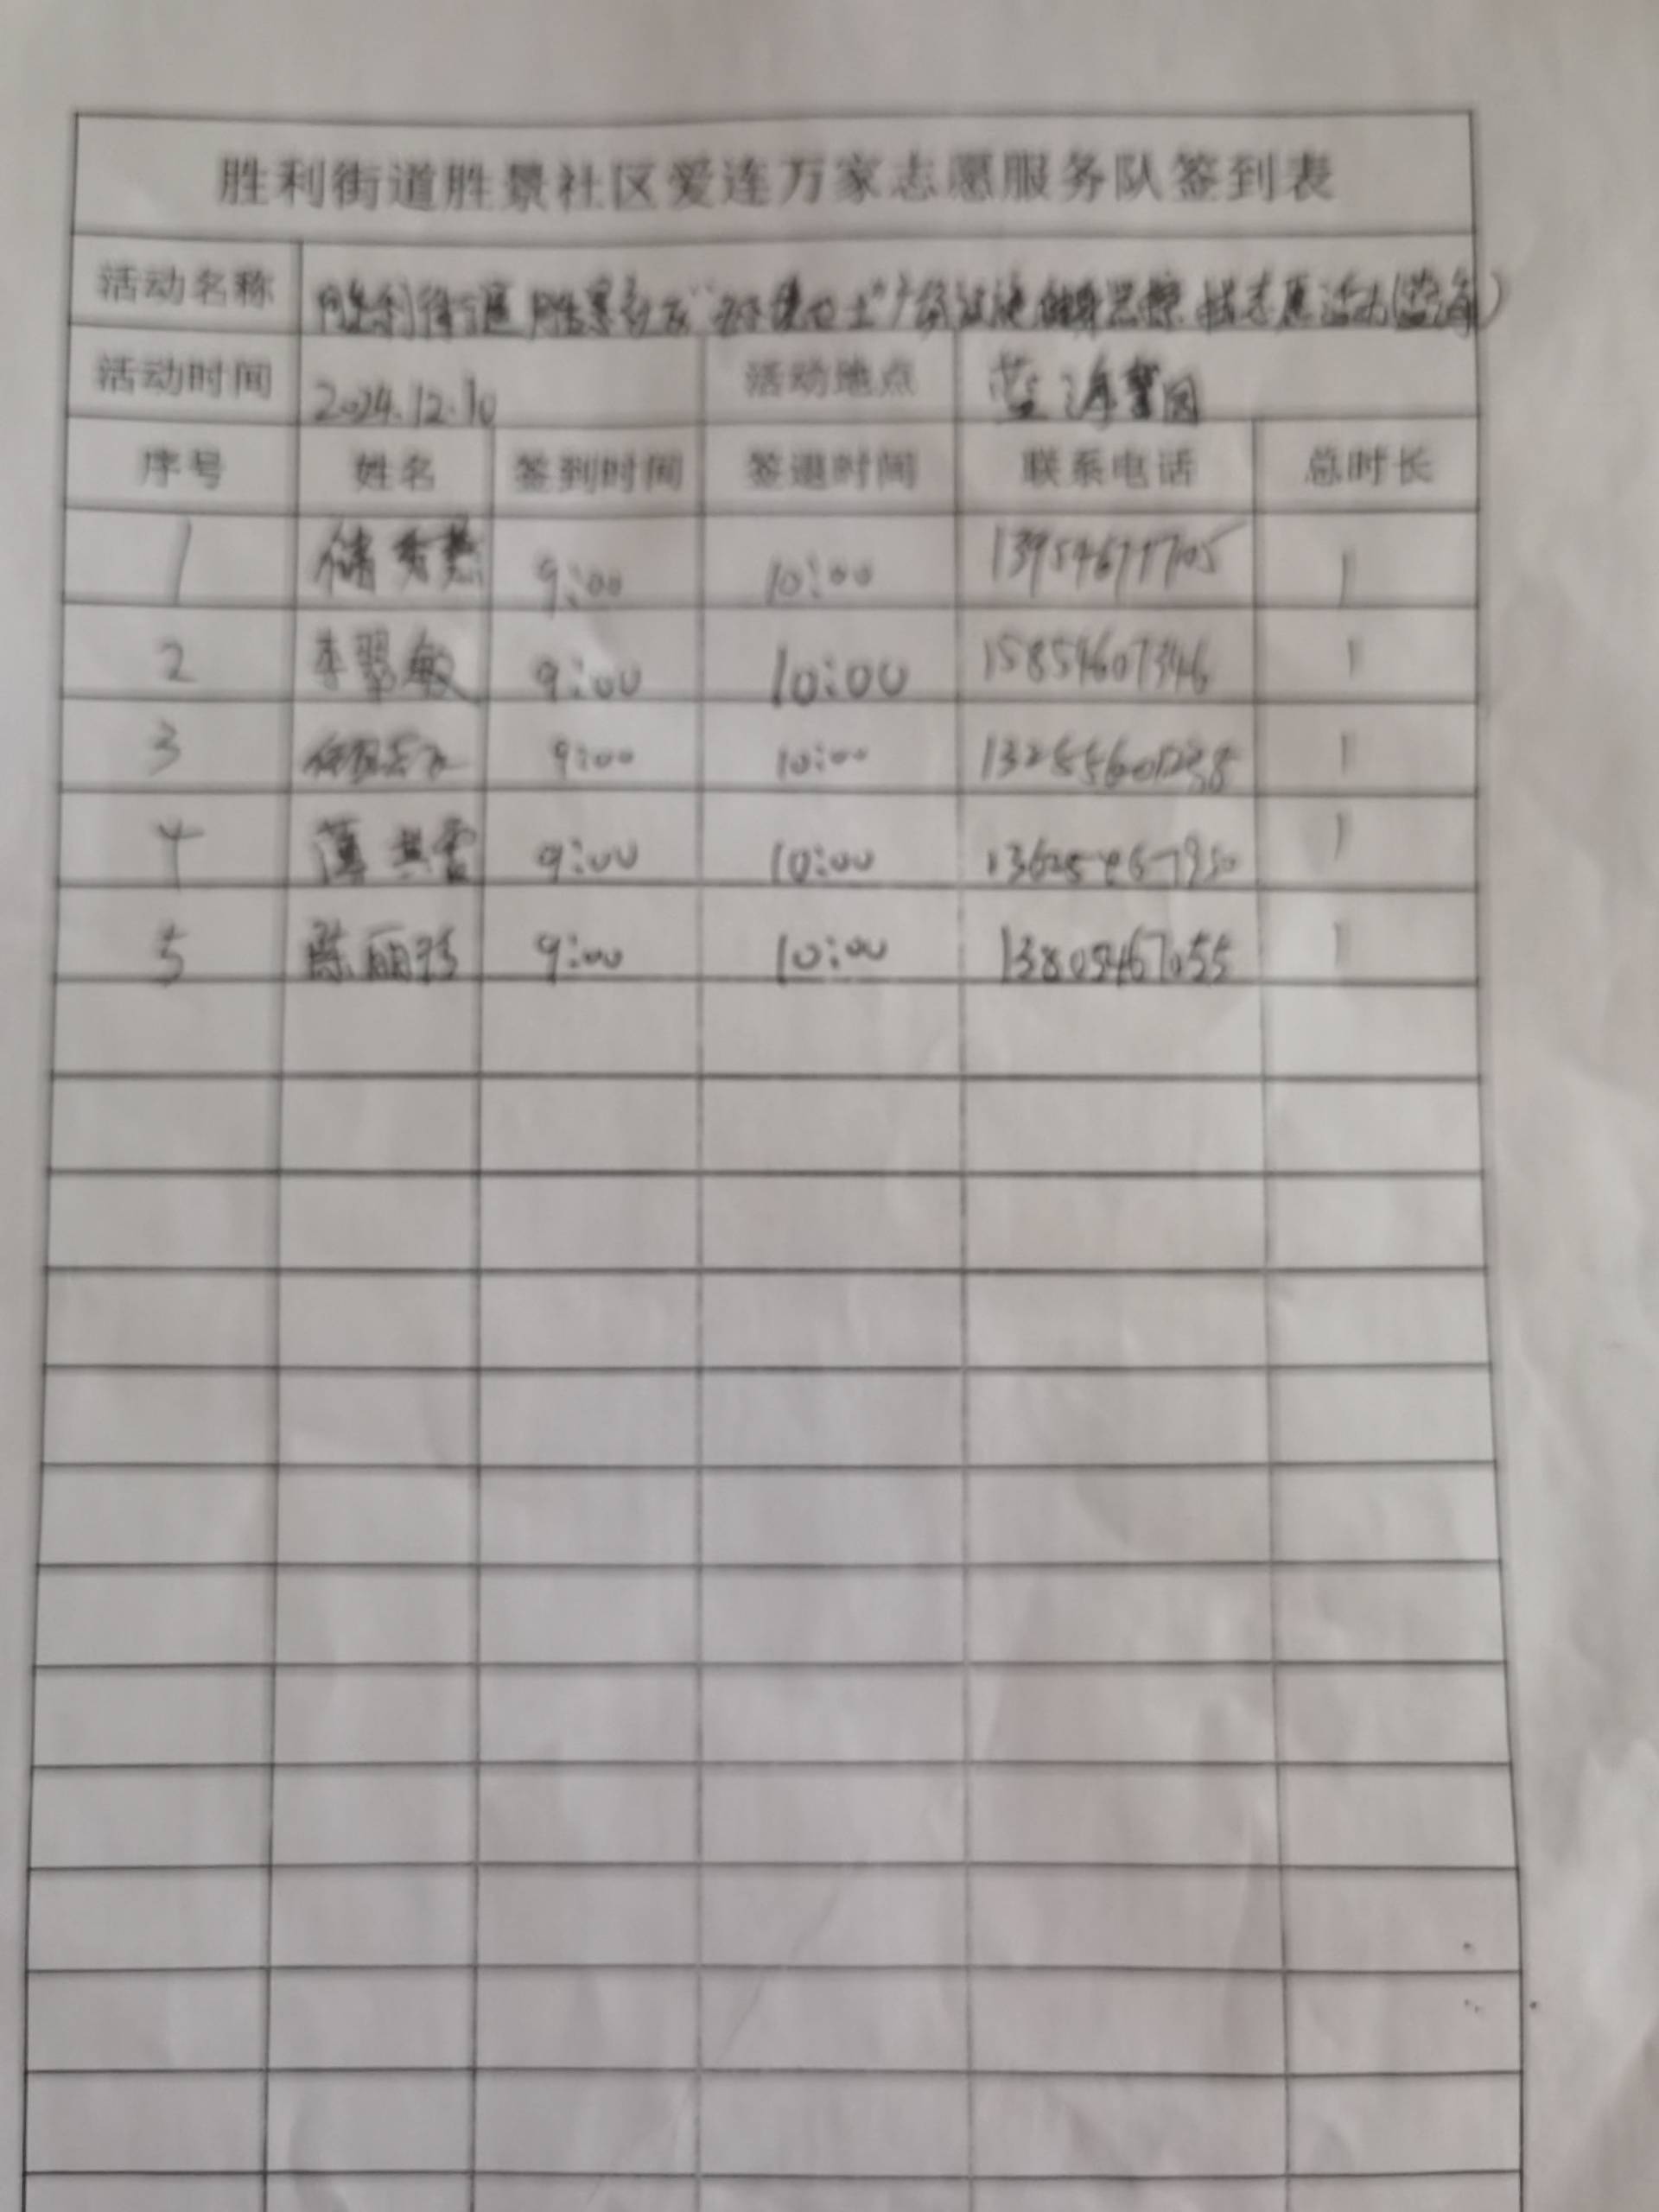 胜利街道胜景社区爱连万家志愿服务队签到表
活动名称 胜利街道胜景社区"环境卫士" 志愿活动(蓝海)
活动时间 2024.12.10 活动地点 蓝海馨园
序号 姓名 签到时间 签退时间 联系电话 总时长
1 储秀燕 9:00 10:00 1
2 李翠敏 9:00 10:00 15854607346 1
3 9:00 10:00 1
4 薄其雪 9:00 10:00 1
5 陈丽 9:00 10:00 13805467055 1